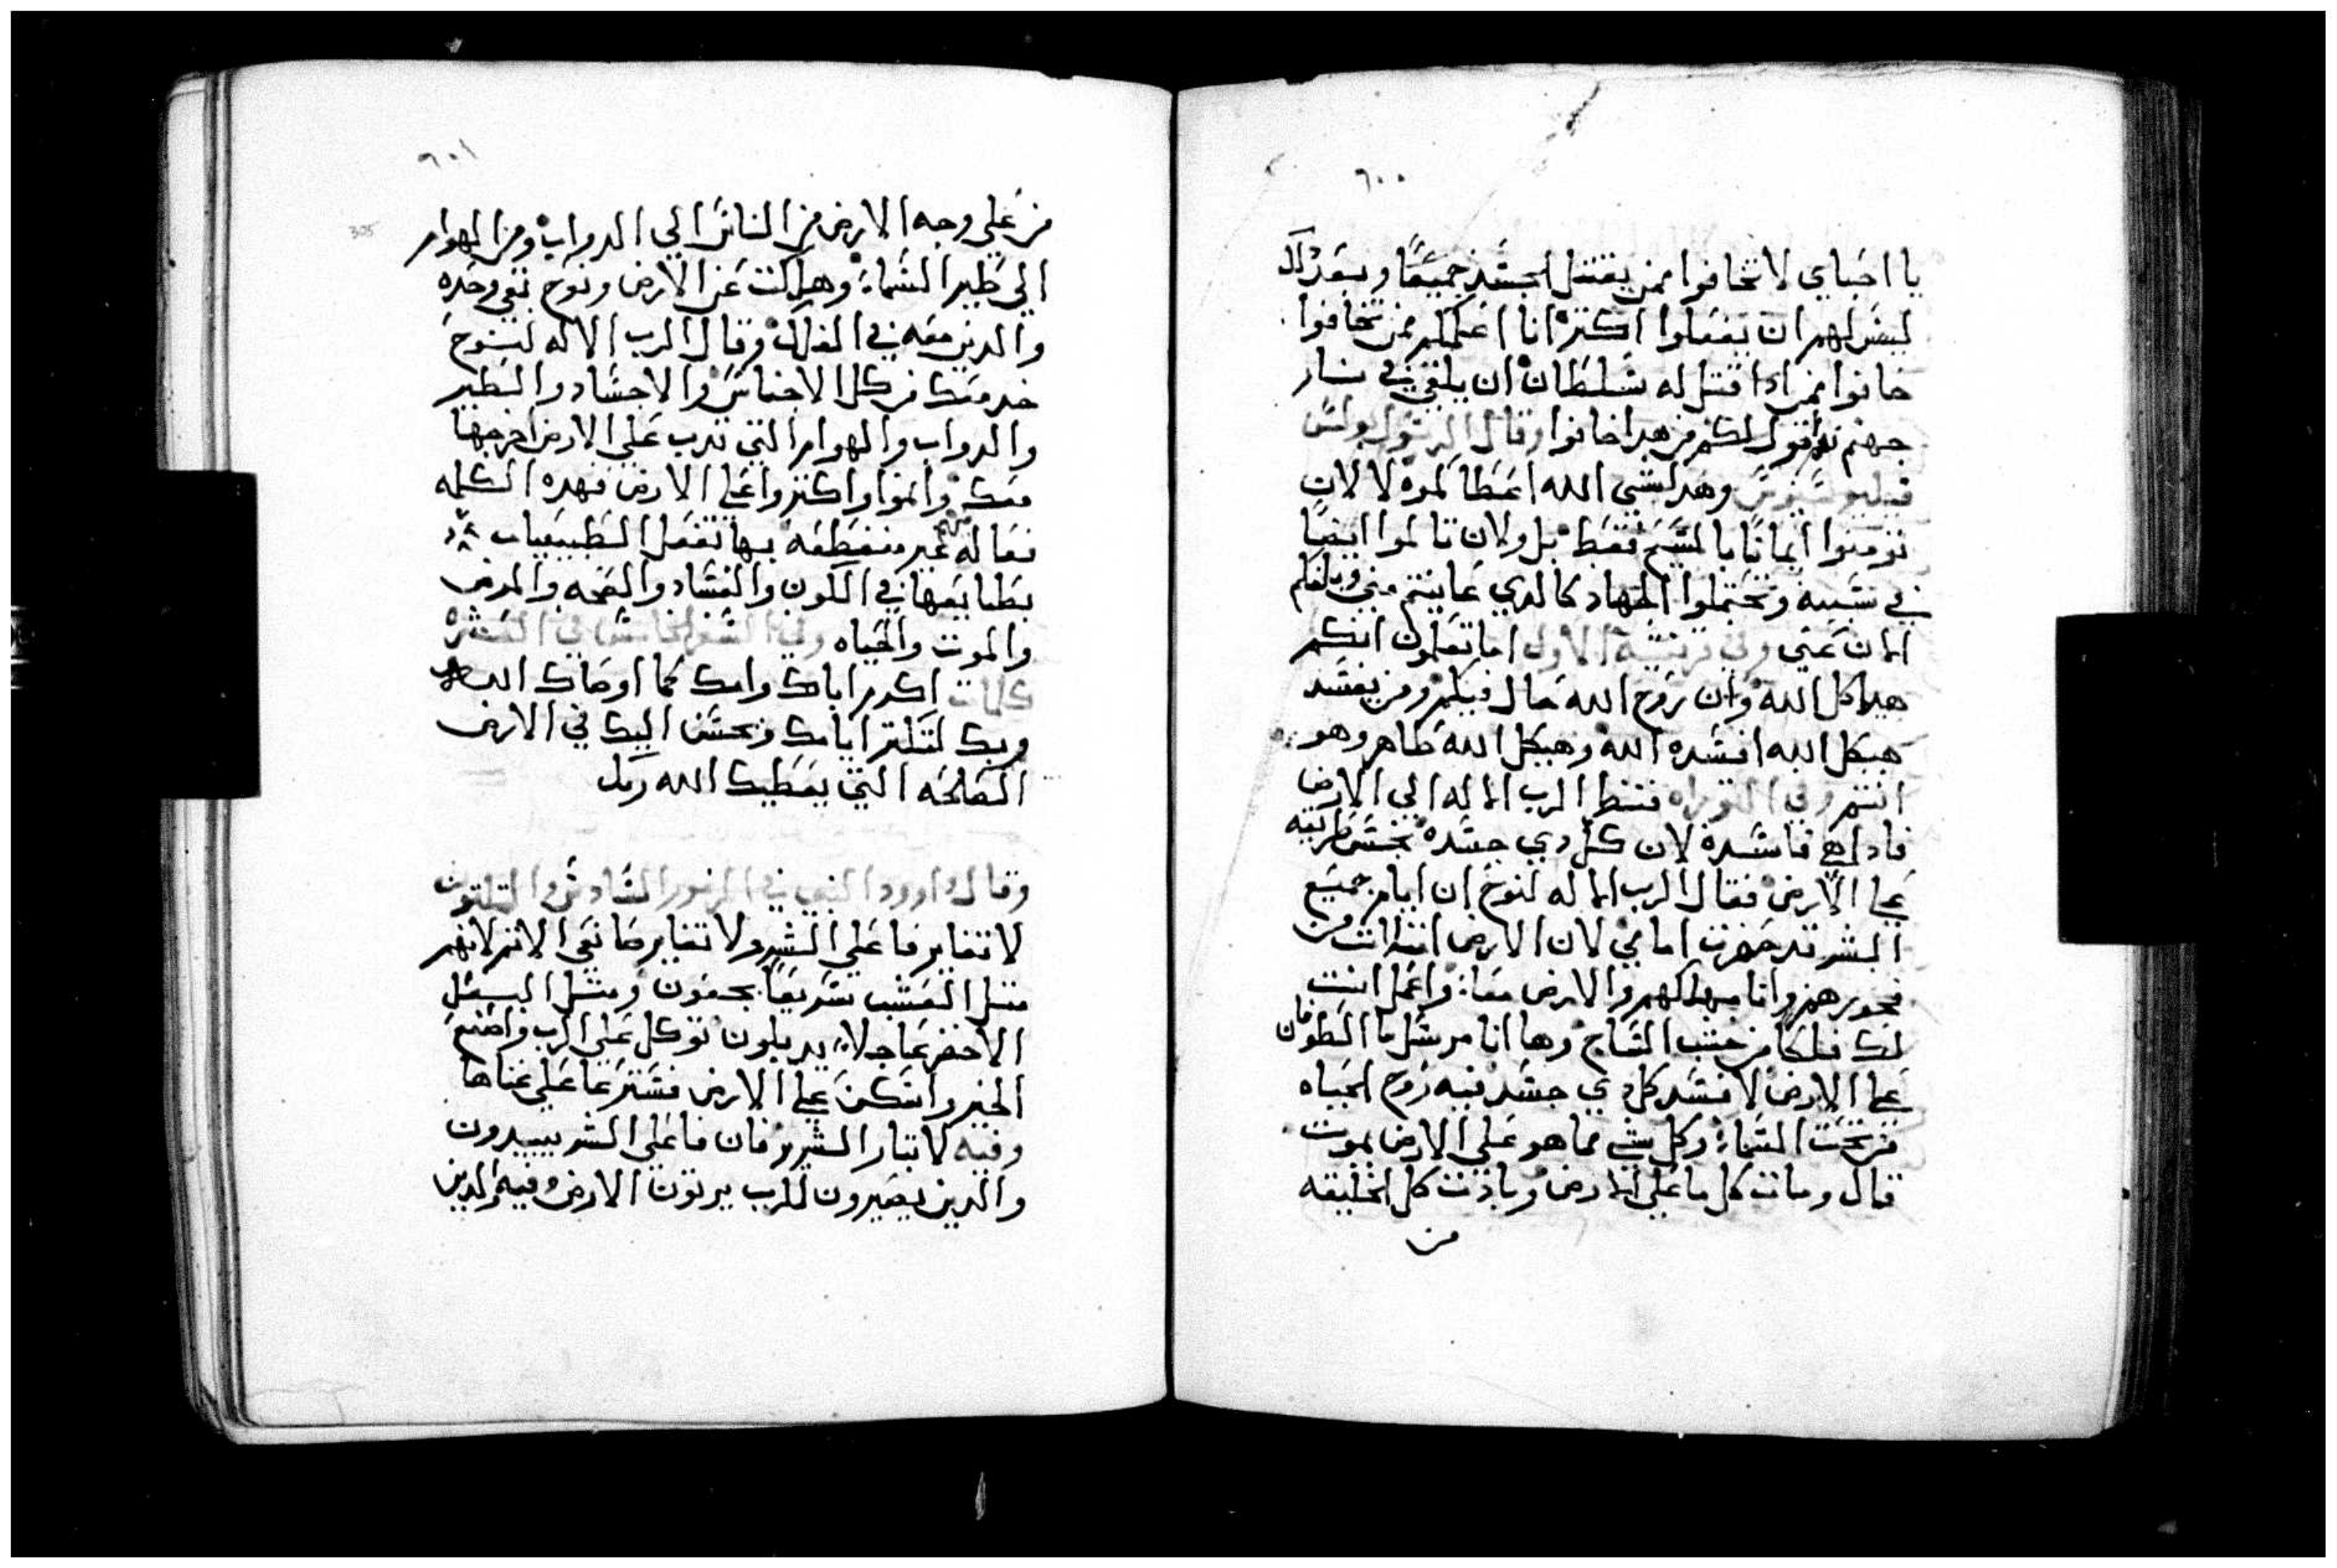 ٦٠٠
يا احباي لا تخافوا ممن يقتل الجسد جميعًا وبعد ذلك
ليس لهم ان يفعلوا اكتر انا اعلمكم ممن تخافوا
خافوا ممن ادا قتل له سلطان ان يلقي في نار
جهنم نعم اقول لكم من هدا خافوا وقال الرسول بولس
وهدا شي الله اعطاكموه لا لان
تومنوا ايمانًا بالمسيح فقط بل ولان تالموا ايضًا
في سببه وتحتملوا الجهاد كالدي عاينتم مني وبلغكم
الان عني وفي قرنتية الاولي اما تعلمون انكم
هيكل الله وان روح الله حال فيكم ومن يفسد
هيكل الله افسده الله وهيكل الله طاهر وهو
انتم وفي التوراه فنظر الرب الاله الي الارض
فادا هي فاسده لان كل دي جسد نجس طريقه
علي الارض فقال الرب الاله لنوح ان ايام جميع
البشر قد حضرت امامي لان الارض امتلات من
فجورهم وانا مهلكهم والارض معا واعمل انت
لك فلكا من خشب الساج وها انا مرسل ما الطوفان
علي الارض لافسد كل دي جسد فيه روح الحياه
من تحت السماء وكل شي مما هو علي الارض يموت
قال ومات كل ما علي الارض وبادت كل الخليقه
من
٦٠١
305
من علي وجه الارض من الناس الي الدواب ومن الهوام
الي طير السماء وهلكت عن الارض ونوح بقي وحده
والدين معه في الفلك وقال الرب الاله لنوح
خد معك من كل الاجناس والاجساد والطير
والدواب والهوام التي تدب علي الارض اخرجها
معك وانموا واكتروا علي الارض فهده الكلمه
فعاله غير منقطعه بها تفعل الطبيعيات
بطبايعها في الكون والفساد والصحه والمرض
والموت والحياه وفي السفر الخامس في العشره
كلمات اكرم اباك وامك كما اوصاك الله
ربك لتكتر ايامك ونحسن اليك في الارض
الصالحه التي يعطيك الله ربك
وقال داوود النبي في المزمور السادس والتلتون
لا تغاير فاعلي الشر ولا تغاير صانعي الاتم لانهم
متل العشب سريعًا يجفون ومتل البقل
الاخضر عاجلا يدبلون توكل علي الرب واصنع
الخير واسكن علي الارض فسترعا علي غناها
وفيه لا تبار الشرير فان فاعلي الشر يبيدون
والدين يصبرون للرب يرتون الارض وفيه والدين